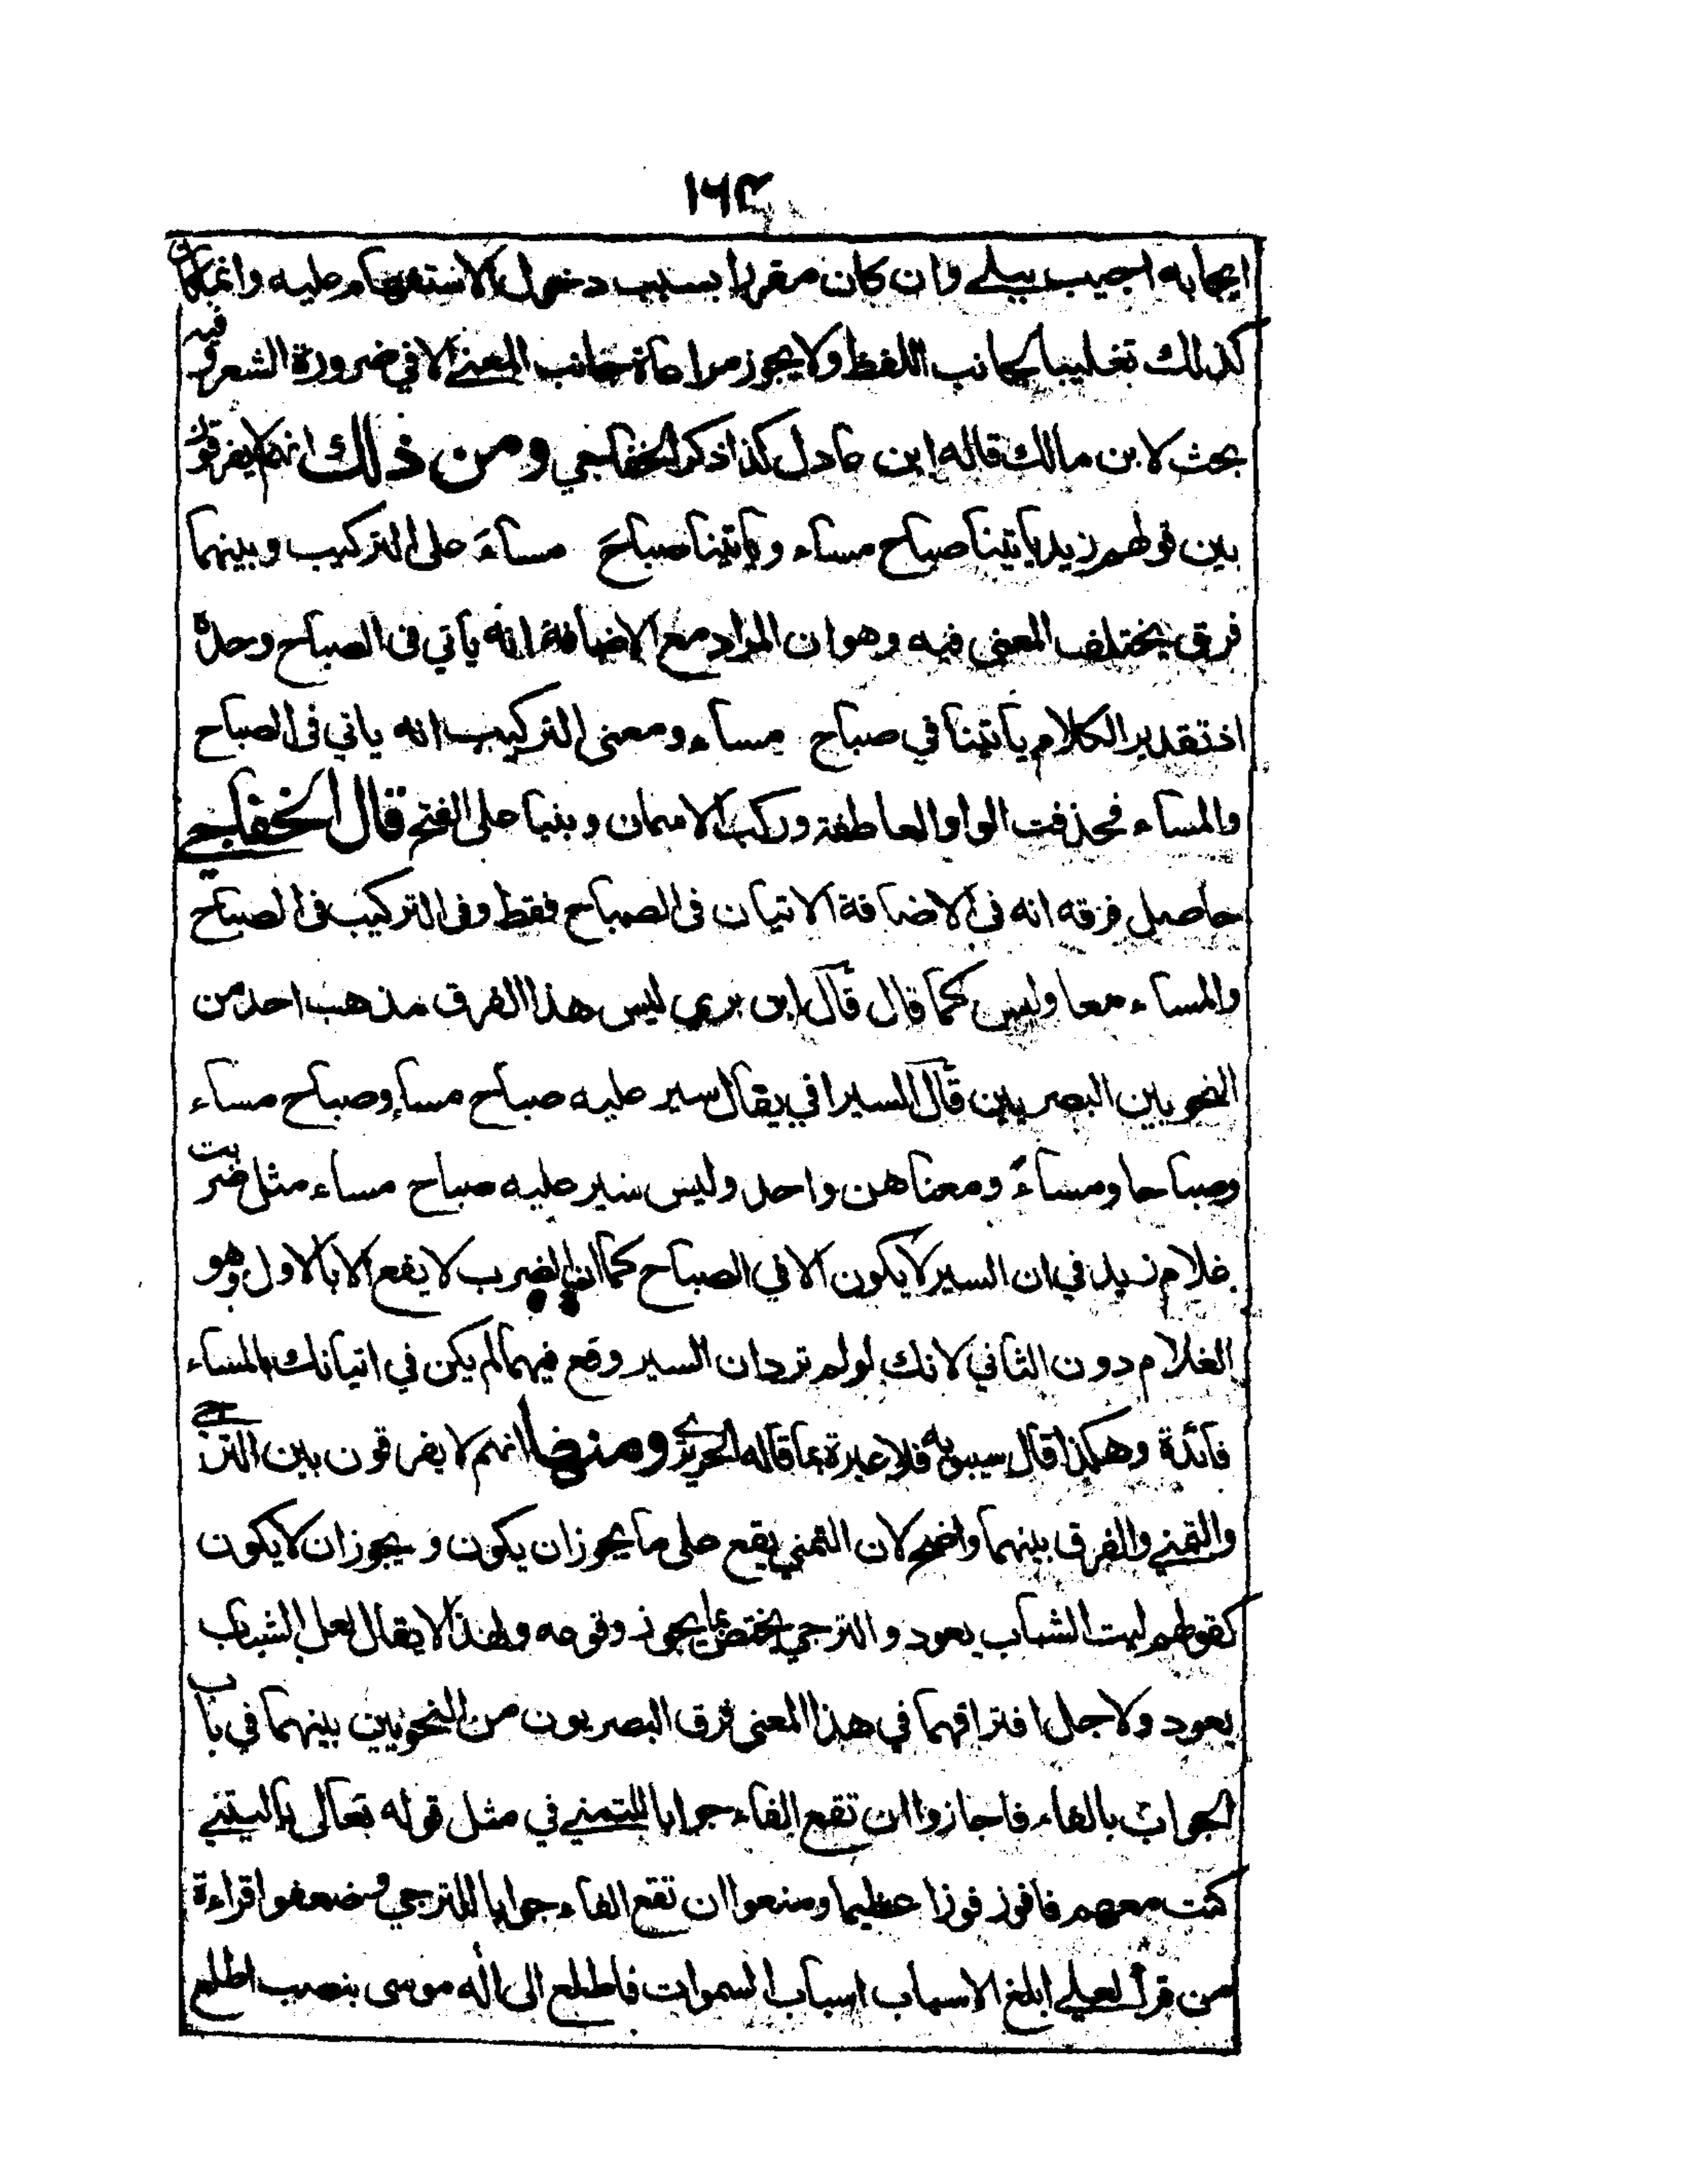 ١٦٣
ايجابه اجيب ببلے وان كان مقررا بسبب دخول الاستفهام عليه وانما كان
كذلك تغليبا لجانب اللفظ ولا يجوز مراعاة جانب المعنے الا في ضرورة الشعر وفيه
بحث لابن مالك قاله ابن عادل كذا ذكر الخفاجي ومن ذلك انهم لا يفرقون
بين قولهم زيد يأتينا صباح مساء ويأتينا صباحَ مساءَ على التركيب وبينهما
فرق يختلف المعنى فيه وهو ان المراد مع الاضافة انه يأتي فى الصباح وحده
اذ تقدير الكلام يأتينا في صباح مساء ومعنى التركيب انه ياتي فى الصباح
والمساء فحذفت الواو العاطفة وركب الاسمان وبنيا على الفتح قال الخفاجے
حاصل فرقه انه فى الاضافة الاتيان فى الصباح فقط وفى التركيب فى الصباح
والمساء معا وليس كما قال قال ابن بري ليس هذا الفرق مذهب احد من
النحويين البصريين قال السيرافي يقال سير عليه صباح مساء وصباح مساء
وصباحا ومساءً ومعناهن واحد وليس سير عليه صباح مساء مثل ضربت
غلام زيد في ان السير لا يكون الا في الصباح كما ان الضرب لا يقع الا بالاول وهو
الغلام دون الثاني لانك لو لم ترد ان السير وقع فيهما لم يكن في اتيانك بالمساء
فائدة وهكذا قال سيبويه فلا عبرة بما قاله الحريري ومنها انهم لا يفرقون بين الترجے
والتمنے والفرق بينهما واضح لان التمني يقع على ما يجوز ان يكون و يجوز ان لا يكون
كقولهم ليت الشباب يعود و الترجي يختص بما يجوز وقوعه ولهذا لا يقال لعل الشباب
يعود ولاجل افتراقهما في هذا المعنى فرق البصريون من النحويين بينهما في باب
الجواب بالفاء فاجازوا ان تقع الفاء جوابا للتمنے في مثل قوله تعالى ياليتنے
كنت معهم فافوز فوزا عظيما ومنعوا ان تقع الفاء جوابا للترجي وضعفوا قراءة
من قرأ لعلے ابلغ الاسباب اسباب السموات فاطلع الى اله موسى بنصب اطلع